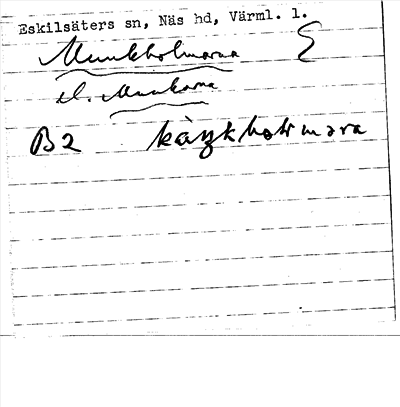 Eskilsäters sn, Näs hd, Värml. l.
Munkholmarna
el. Munkarna
B2